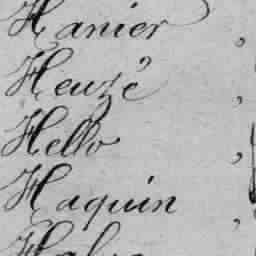 Hanier ,
Heuzé ,
Hello ,
Haquin ,